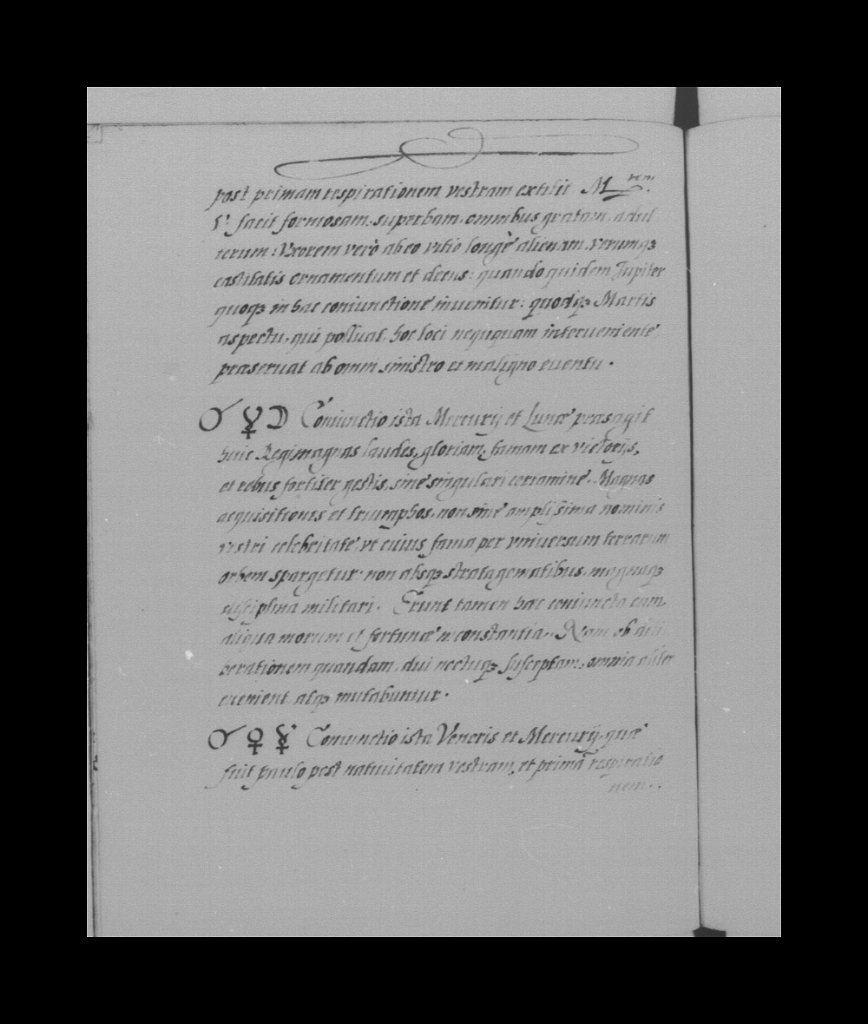 post primam respirationem vestram extitit M.rem
V. facit formosam, superbam, omnibus gratam, adul
teram: Vxorem verò ab eo vitio longè alienam, verumq3
castitatis ornamentum et decus: quandoquidem Jupiter
quoq3 in hac coniunctione inuenitur: quodq3 Martis
aspectu, qui polluat, hoc loci neququam interueniente
praeseruat ab omni sinistro et maligno euentu.
☌ ☿ ☽ Coniunctio ista Mercurij et Lunae praesagit
huic Regi magnas laudes, gloriam, famam ex victorijs,
et rebus fortiter gestis, sine singulari certamine. Magnas
acquisitiones et triumphos, non sine amplissima nominis
vestri celebritate, vt cuius fama per vniuersum terrarum
orbem spargetur: non absq3 stratagematibus, magnaq3
disciplina militari. Erunt tamen haec coniuncta cum
aliqua morum et fortunae inconstantia. Nam ob deli
berationem quandam, diu nectuq3 susceptam, omnia aliter
euenient atq3 mutabuntur.
☌ ♀ ☿ Coniunctio ista Veneris et Mercurij, quae
fuit paulo post natiuitatem vestram, et primã respiratio
nem..